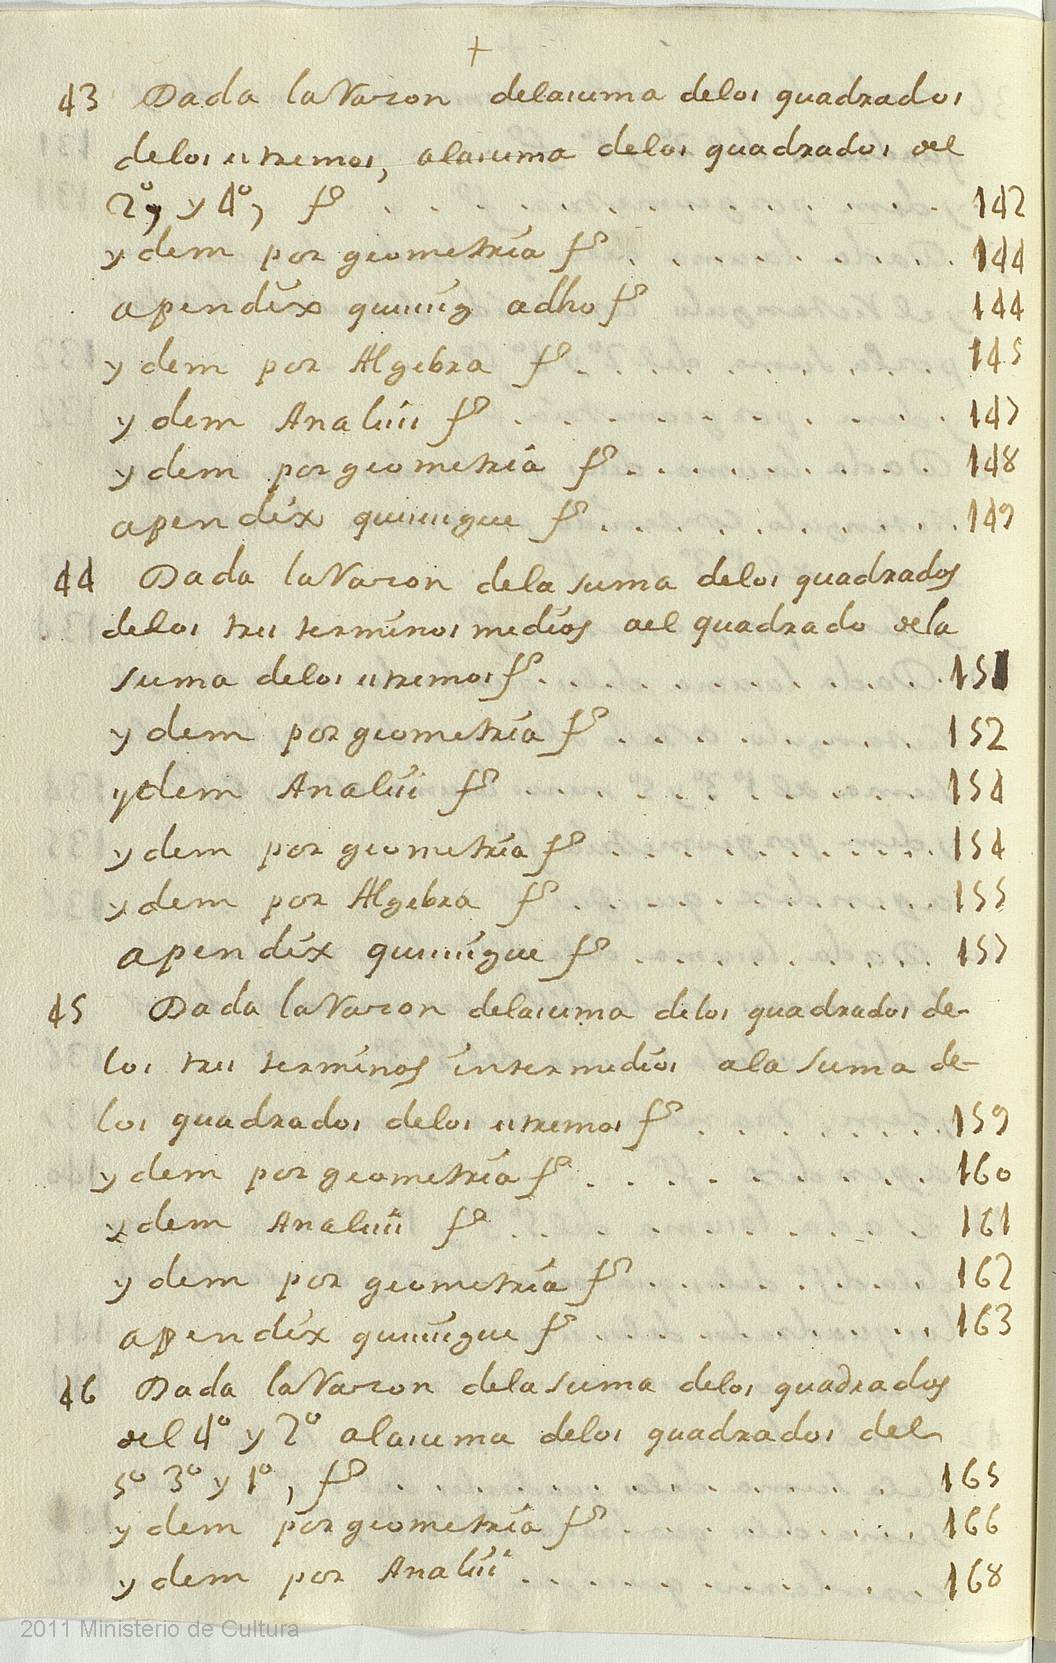 +
43 Dada la Razon delasuma delos quadrados
delos estremos, alasuma delos quadrados del
2º, y 4º, fº . . . . . . . . . . . . . . . . 142
ydem por geometria fº . . . . . . . . 144
apendix quiuig adho fº 144
ydem por Algebra fº . . . . . . . . . 145
ydem Analisi fº . . . . . . . . . . . 147
ydem por geometria fº . . . . . . . . 148
apendix quiuigue fº . . . . . . . . . 149
44 Dada la Razon dela suma delos quadrados
delos tres terminos medios ael quadrado dela
suma delos estremos fº . . . . . . . . . . 151
ydem por geometria fº . . . . . . . . 152
ydem Analisi fº . . . . . . . . . . . 154
ydem por geometria fº . . . . . . . . 154
ydem por Algebra fº . . . . . . . . . 155
apendix quiuigue fº . . . . . . . . . 157
45 Dada la Razon delasuma delos quadrados de-
los tres terminos intermedios ala suma de-
los quadrados delos estremos fº . . . . . . . 159
ydem por geometria fº . . . . . . . . 160
ydem Analisi fº . . . . . . . . . . . 161
ydem por geometria fº . . . . . . . . 162
apendix quiuigue fº . . . . . . . . . 163
46 Dada la Razon dela suma delos quadrados
del 4º y 2º alasuma delos quadrados del
5º 3º y 1º, fº . . . . . . . . . . . . . . 165
ydem por geometria fº . . . . . . . . 166
ydem por Analisi . . . . . . . . . . 168
2011 Ministerio de Cultura